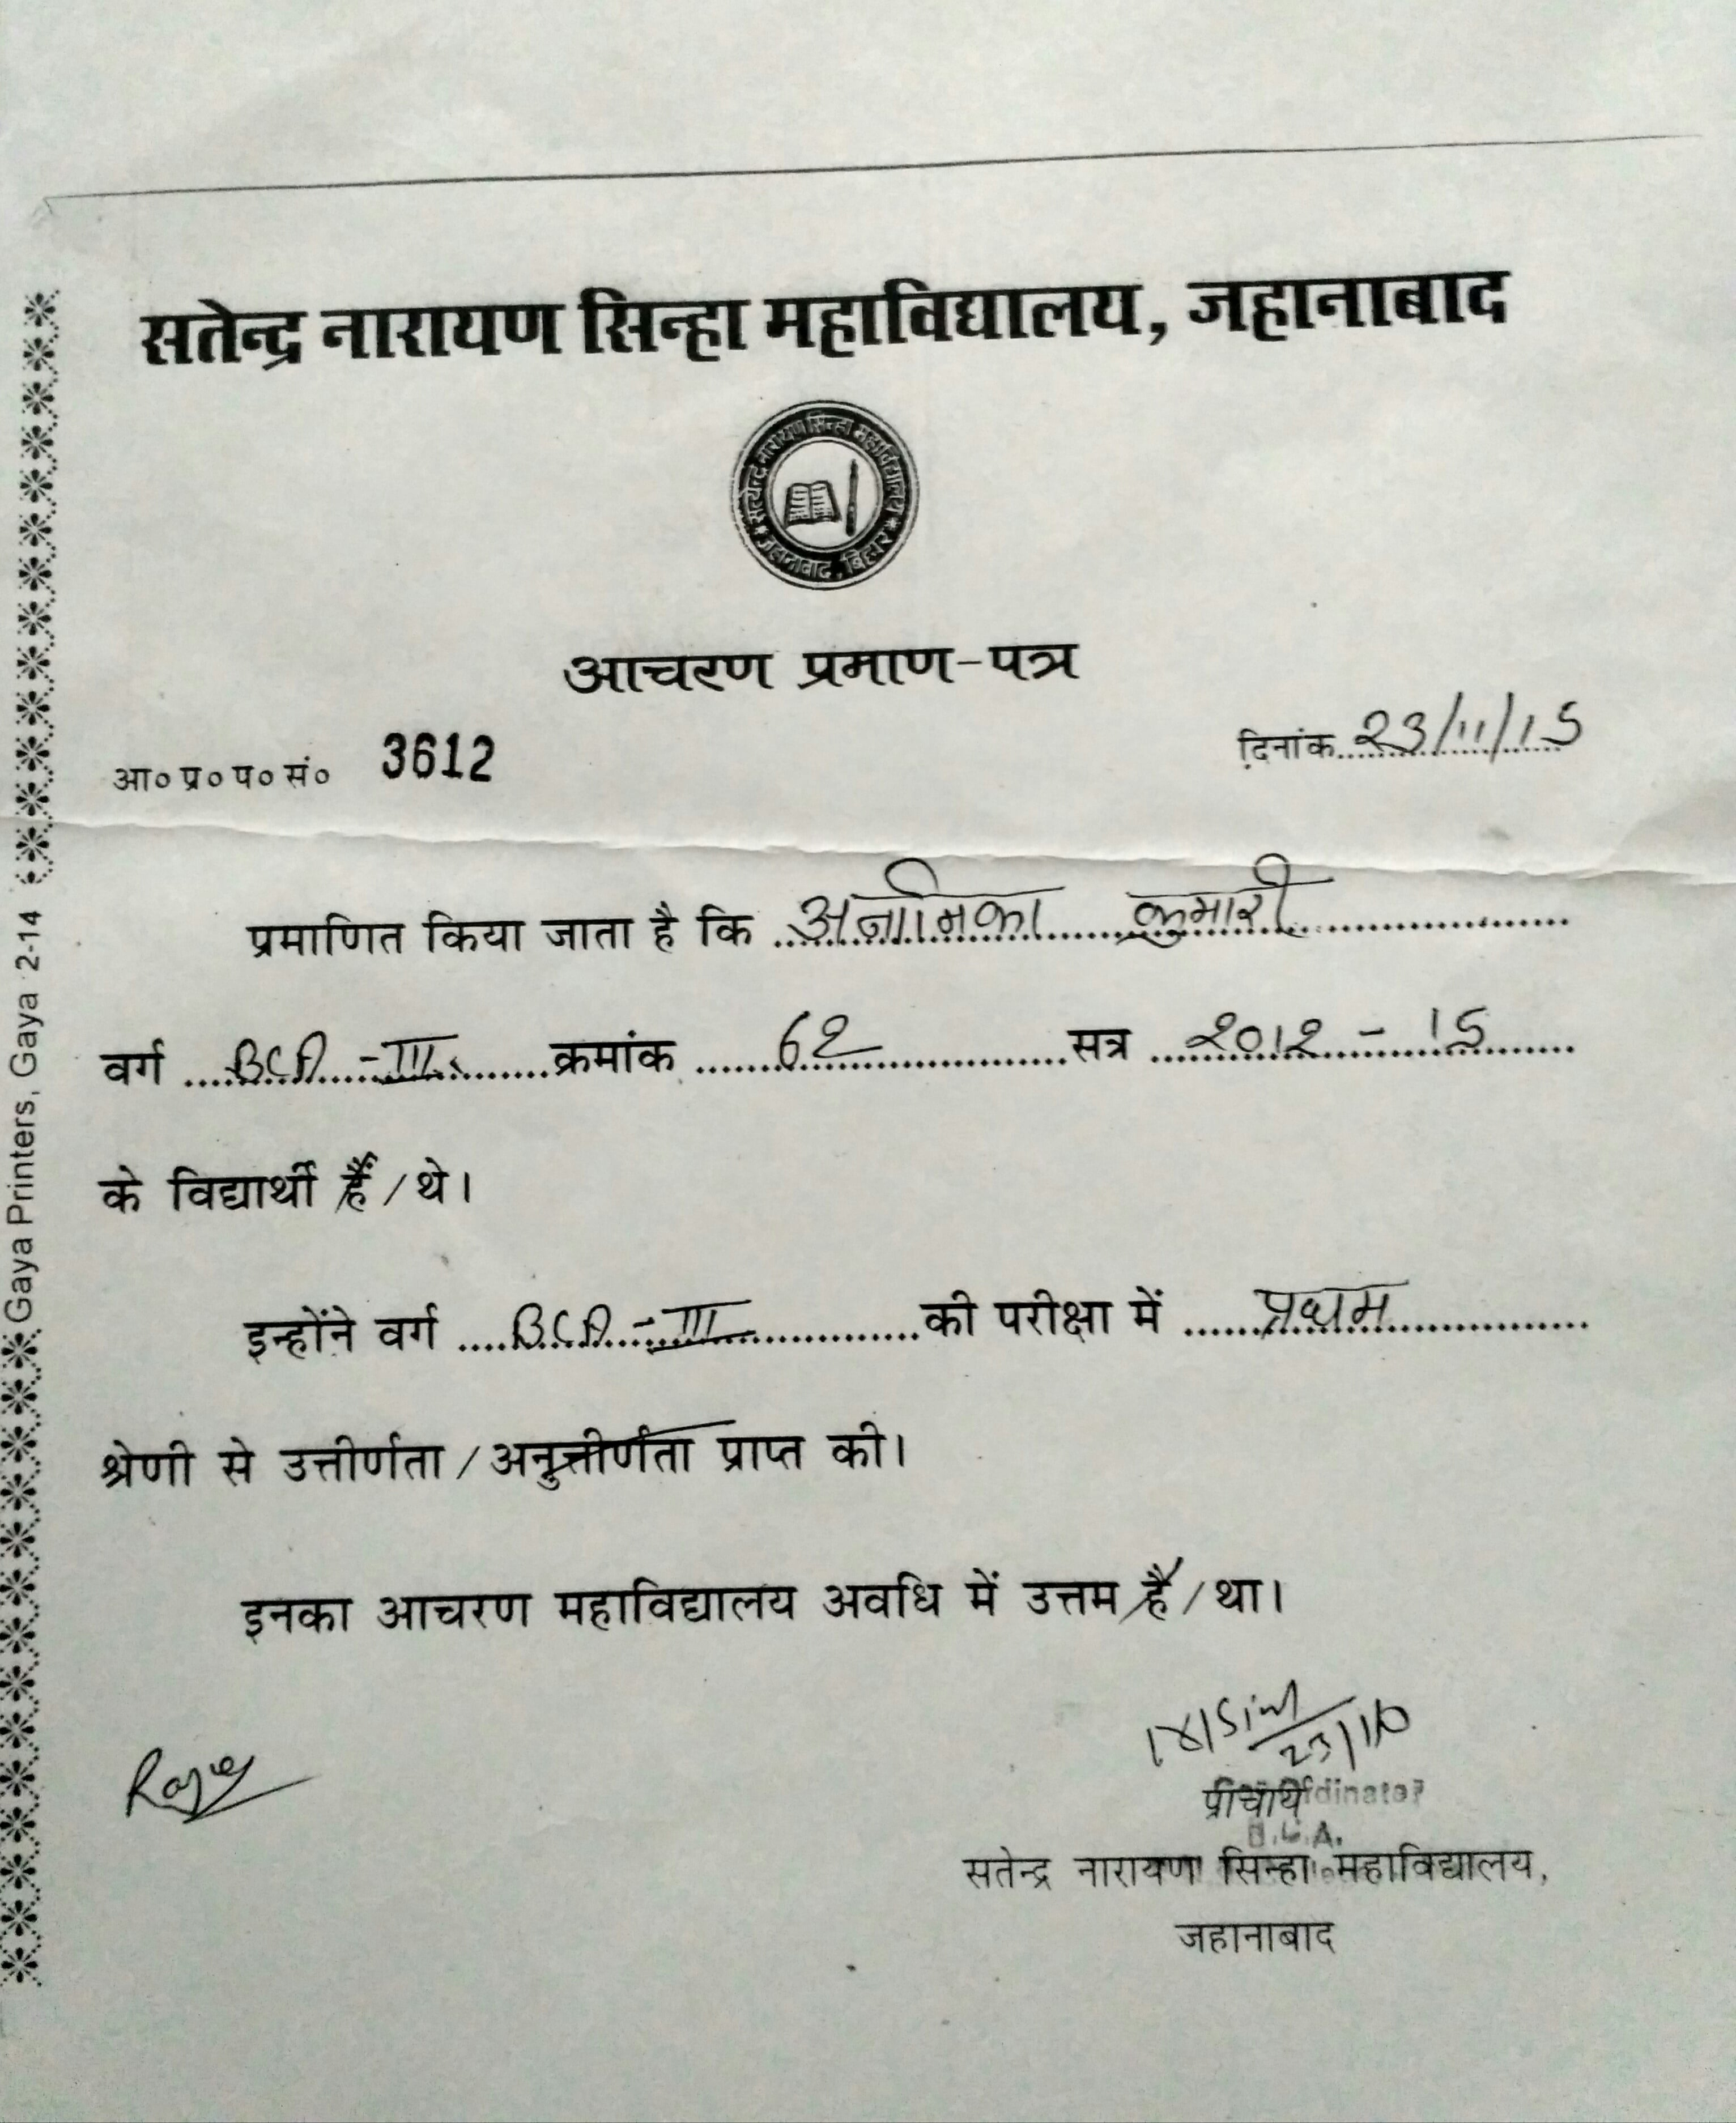 सतेन्द्र नारायण सिन्हा महाविद्यालय, जहानाबाद
सत्येन्द्र नारायण सिन्हा महाविद्यालय
जहानाबाद, बिहार
आचरण प्रमाण-पत्र
आ० प्र० प० सं० 3612
दिनांक 23/11/15
प्रमाणित किया जाता है कि अनामिका कुमारी
वर्ग BCA - III क्रमांक 62 सत्र 2012 - 15
के विद्यार्थी हैं / थे।
इन्होंने वर्ग BCA - III की परीक्षा में प्रथम
श्रेणी से उत्तीर्णता / अनुत्तीर्णता प्राप्त की।
इनका आचरण महाविद्यालय अवधि में उत्तम है / था।
प्राचार्य
B.C.A.
सतेन्द्र नारायण सिन्हा महाविद्यालय,
जहानाबाद
Gaya Printers, Gaya 2-14